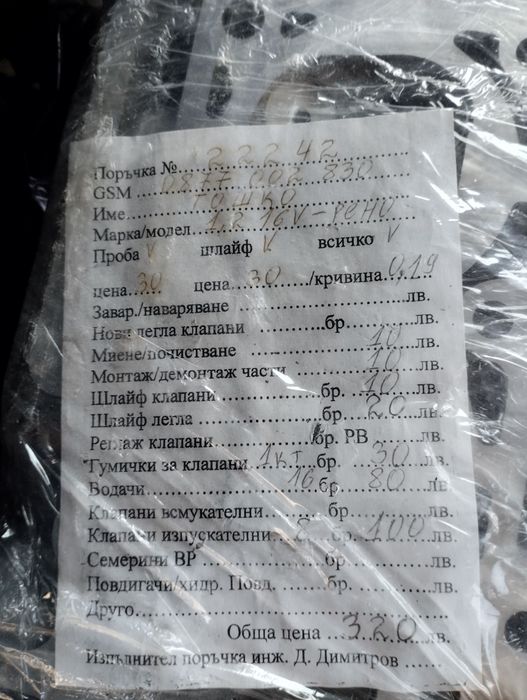 Поръчка № ... 222 42
GSM ... 0877 002 830
Име ... ТОШКО
Марка/модел ... 1,2 16V - РЕНО
Проба V шлайф V всичко V
цена ... 30 цена ... 30 /кривина 0,19
Завар./наваряване ... лв.
Нови легла клапани ... бр. ... лв.
Миене/почистване ... 10 лв.
Монтаж/демонтаж части ... 10 лв.
Шлайф клапани ... бр. 10 лв.
Шлайф легла ... бр. 20 лв.
Реглаж клапани ... бр. РВ ... лв.
Гумички за клапани 1 кт. бр. 30 лв.
Водачи ... 16 бр. 80 лв.
Клапани всмукателни ... бр. ... лв.
Клапани изпускателни ... бр. 100 лв.
Семерини ВР ... бр. ... лв.
Повдигачи/хидр. Повд. ... бр. ... лв.
Друго ...
Обща цена ... 320 лв.
Изпълнител поръчка инж. Д. Димитров ...